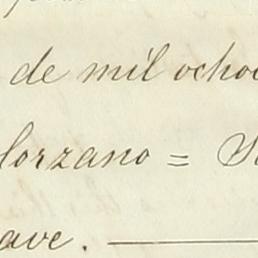 de mil ocho
lorzano = S
ave.